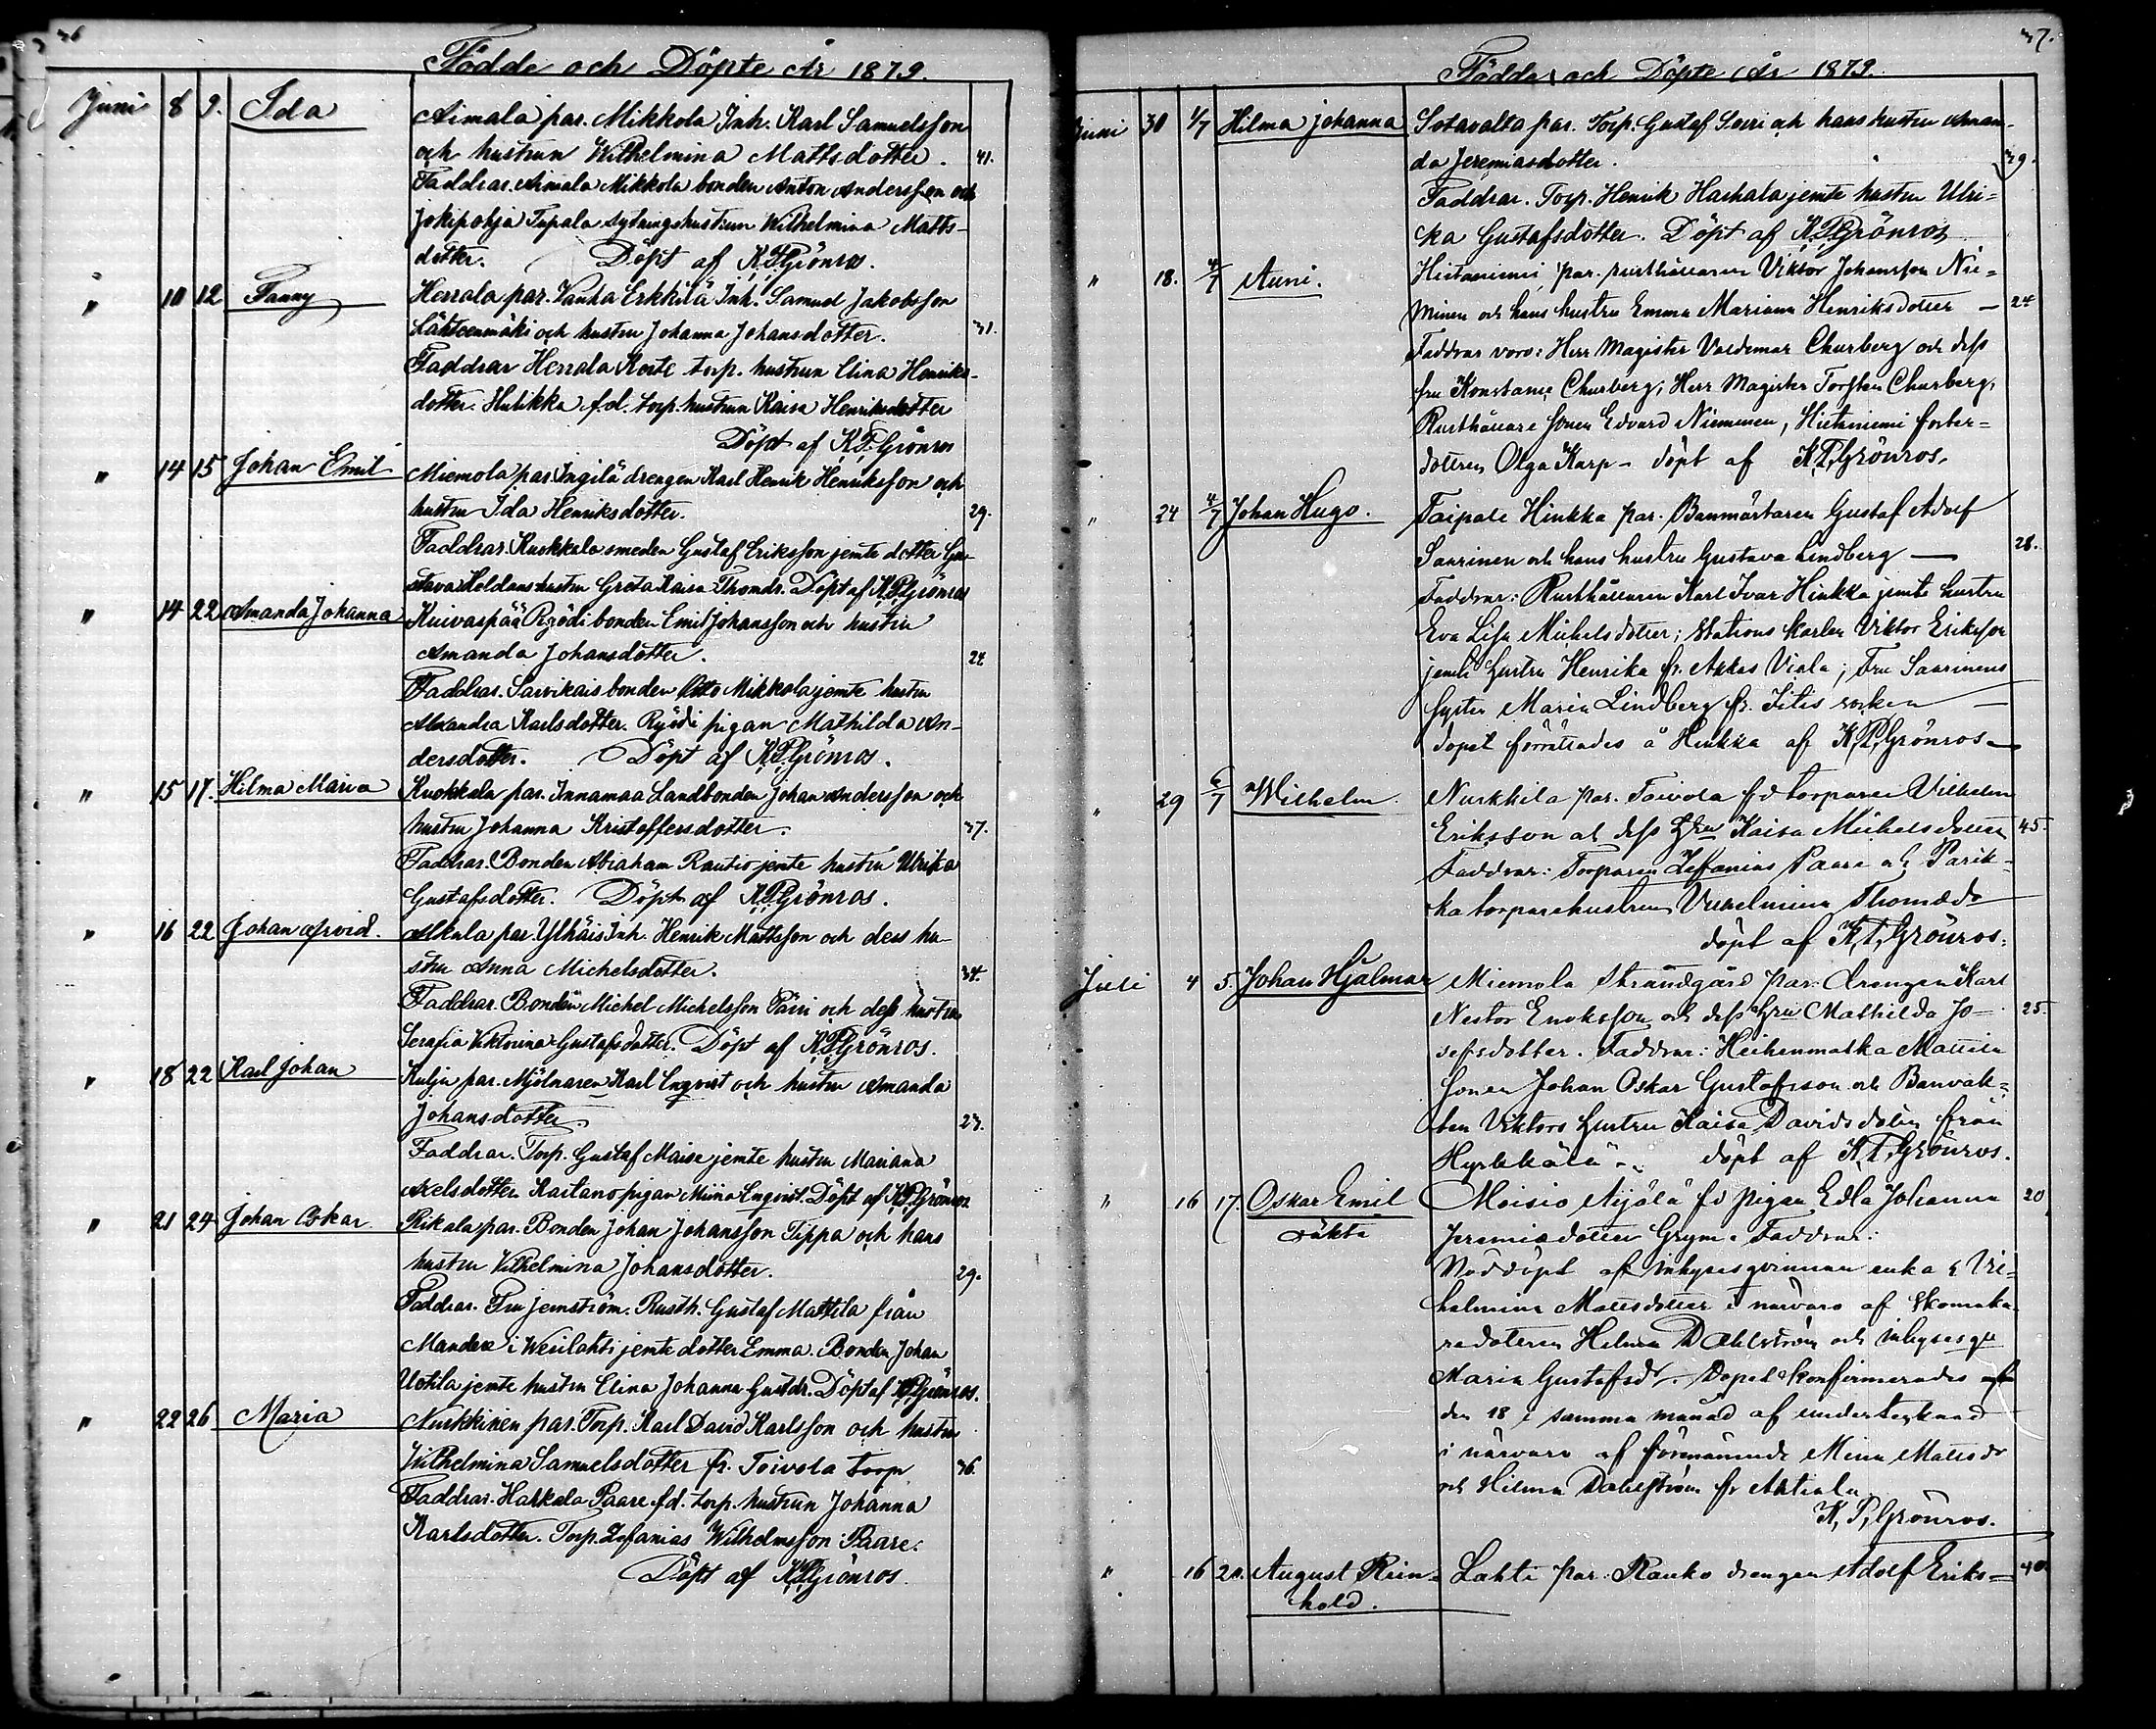 36
Födde och Döpte År 1879.
Juni 8 9. Ida Aimala par. Mikkola Inh. Karl Samuelsson
och hustrun Wilhelmina Mattsdotter. 41.
Faddrar. Aimala Mikkola bonden Anton Andersson och
Jokipohja Tupala sytningshustrun Wilhelmina Matts-
dotter. Döpt af K.F.Grönros.
" 10 12 Fanny Herrala par. Vanha Erkkilä Inh. Samuel Jakobsson
Lähteenmäki och hustru Johanna Johansdotter. 31.
Faddrar Herrala Korte torp. hustrun Elina Henriks-
dotter. Hulikka f.d. torp. hustrun Kaisa Henriksdotter
Döpt af K.F.Grönros
" 14 15 Johan Emil Miemola par. Ingilä drengen Karl Henrik Henriksson och
hustru Ida Henriksdotter. 29.
Faddrar. Kuokkala smeden Gustaf Eriksson jemte dotter Gu-
stava hustru Greta Kaisa Thomdr. Döpt af K.F.Grönros
" 14 22 Amanda Johanna Kuivaspää Ryödi bonden Emil Johansson och hustru
Amanda Johansdotter. 24
Faddrar. Savikais bonden Otto Mikkola jemte hustru
Alexandra Karlsdotter. Ryödi pigan Mathilda An-
dersdotter. Döpt af K.F.Grönros.
" 15 17. Hilma Maria Kuokkala par. Innamaa Landbonden Johan Andersson och
hustru Johanna Kristoffersdotter. 37.
Faddrar. Bonden Abraham Rautio jemte hustru Ulrika
Gustafsdotter. Döpt af K.F.Grönros.
" 16 22 Johan Arvid. Alkula par. Ylhäis Inh. Henrik Mattsson och dess hu-
stru Anna Michelsdotter. 34.
Faddrar. Bonden Michel Michelsson Päiri och dess hustru
Serafia Viktorina Gustafsdotter. Döpt af K.F.Grönros.
" 18 22 Karl Johan Kulju par. Mjölnaren Karl Enqvist och hustru Amanda
Johansdotter. 23.
Faddrar. Torp. Gustaf Maise jemte hustru Mariana
Axelsdotter Kaitano pigan Miina Enqvist. Döpt af K.F.Grönros
" 21 24 Johan Oskar Rikala par. Bonden Johan Johansson Tippa och hans
hustru Vilhelmina Johansdotter. 29.
Faddrar. Fru Jernström. Rusth. Gustaf Mattila från
Mandere i Wesilahti jemte dotter Emma. Bonden Johan
Uotila jemte hustru Elina Johanna Gustdr. Döpt af K.F.Grönros.
" 22 26 Maria Nurkkinen par. Torp. Karl David Karlsson och hustru
Vilhelmina Samuelsdotter fr. Toivola torp 36.
Faddrar. Harkala Paare f.d. torp. hustrun Johanna
Karlsdotter. Torp. Zefanias Wilhelmsson Paare.
Döpt af K.F.Grönros.
37.
Födde och Döpte År 1879.
Juni 30 1/7 Hilma Johanna Sotavalta par. Torp. Gustaf Suri och hans hustru Aman-
da Jeremiasdotter. 39.
Faddrar. Torp. Henrik Harhala jemte hustru Ulri-
cka Gustafsdotter. Döpt af K.F.Grönros
" 18. 4/7 Auni. Hietaniemi par. rusthållaren Viktor Johansson Nie-
minen och hans hustru Emma Mariana Henriksdotter — 24
Faddrar voro: Herr Magister Valdemar Churberg och dess
fru Konstance Churberg; Herr Magister Torsten Churberg,
Rusthållare sonen Edvard Nieminen, Hietaniemi foster-
dottren Olga Karp - döpt af K.F.Grönros.
" 24 4/7 Johan Hugo. Taipale Hinkka par. Banmästaren Gustaf Adolf
Saarinen och hans hustru Gustava Lindberg — 28.
Faddrar: Rusthållaren Karl Ivar Hinkka jemte hustru
Eva Lisa Michelsdotter; Stations karlen Viktor Eriksson
jemte hustru Henrika fr. Akkas Viala; Fru Saarinens
syster Maria Lindberg fr. Iitis socken —
dopet förrättades å Hinkka af K.F.Grönros —
" 29 6/7 Wilhelm. Nurkkila par. Toivola f.d torparen Vilhelm
Eriksson och dess hru Kaisa Michelsdotter 45.
Faddrar: Torparen Zefanias Paare och Parik-
ka torparehustrun Vilhelmina Thomædr
döpt af K.F.Grönros.
Juli 4 5. Johan Hjalmar Miemola Strandgård par. Drengen Karl
Nestor Enoksson och dess hru Mathilda Jo- 25.
sefsdotter. Faddrar: Heihenmatka Mattila
sonen Johan Oskar Gustafsson och Banvak-
ten Viktors hustru Kaisa Davidsdotter från
Hyrkkälä - döpt af K.F.Grönros.
" 16 17. Oskar Emil Moisio Äijälä fd pigan Edla Johanna 20
oäkta Jeremiædotter Grym. Faddrar:
Nöddöpt af inhysesqvinnan enka Vil-
helmina Mattsdotter i närvaro af skomaka-
redotteren Hilma Dahlström och inhysesqv
Maria Gustafsd. Dopet konfirmerades
den 18 i samma månad af undertecknad
i närvaro af förenämnde Miina Mattsdr
och Hilma Dahlström fr Ahtiala
K.F.Grönros.
" 16 20. August Rein- Lahti par. Rauko drengen Adolf Eriks- 40.
hold.